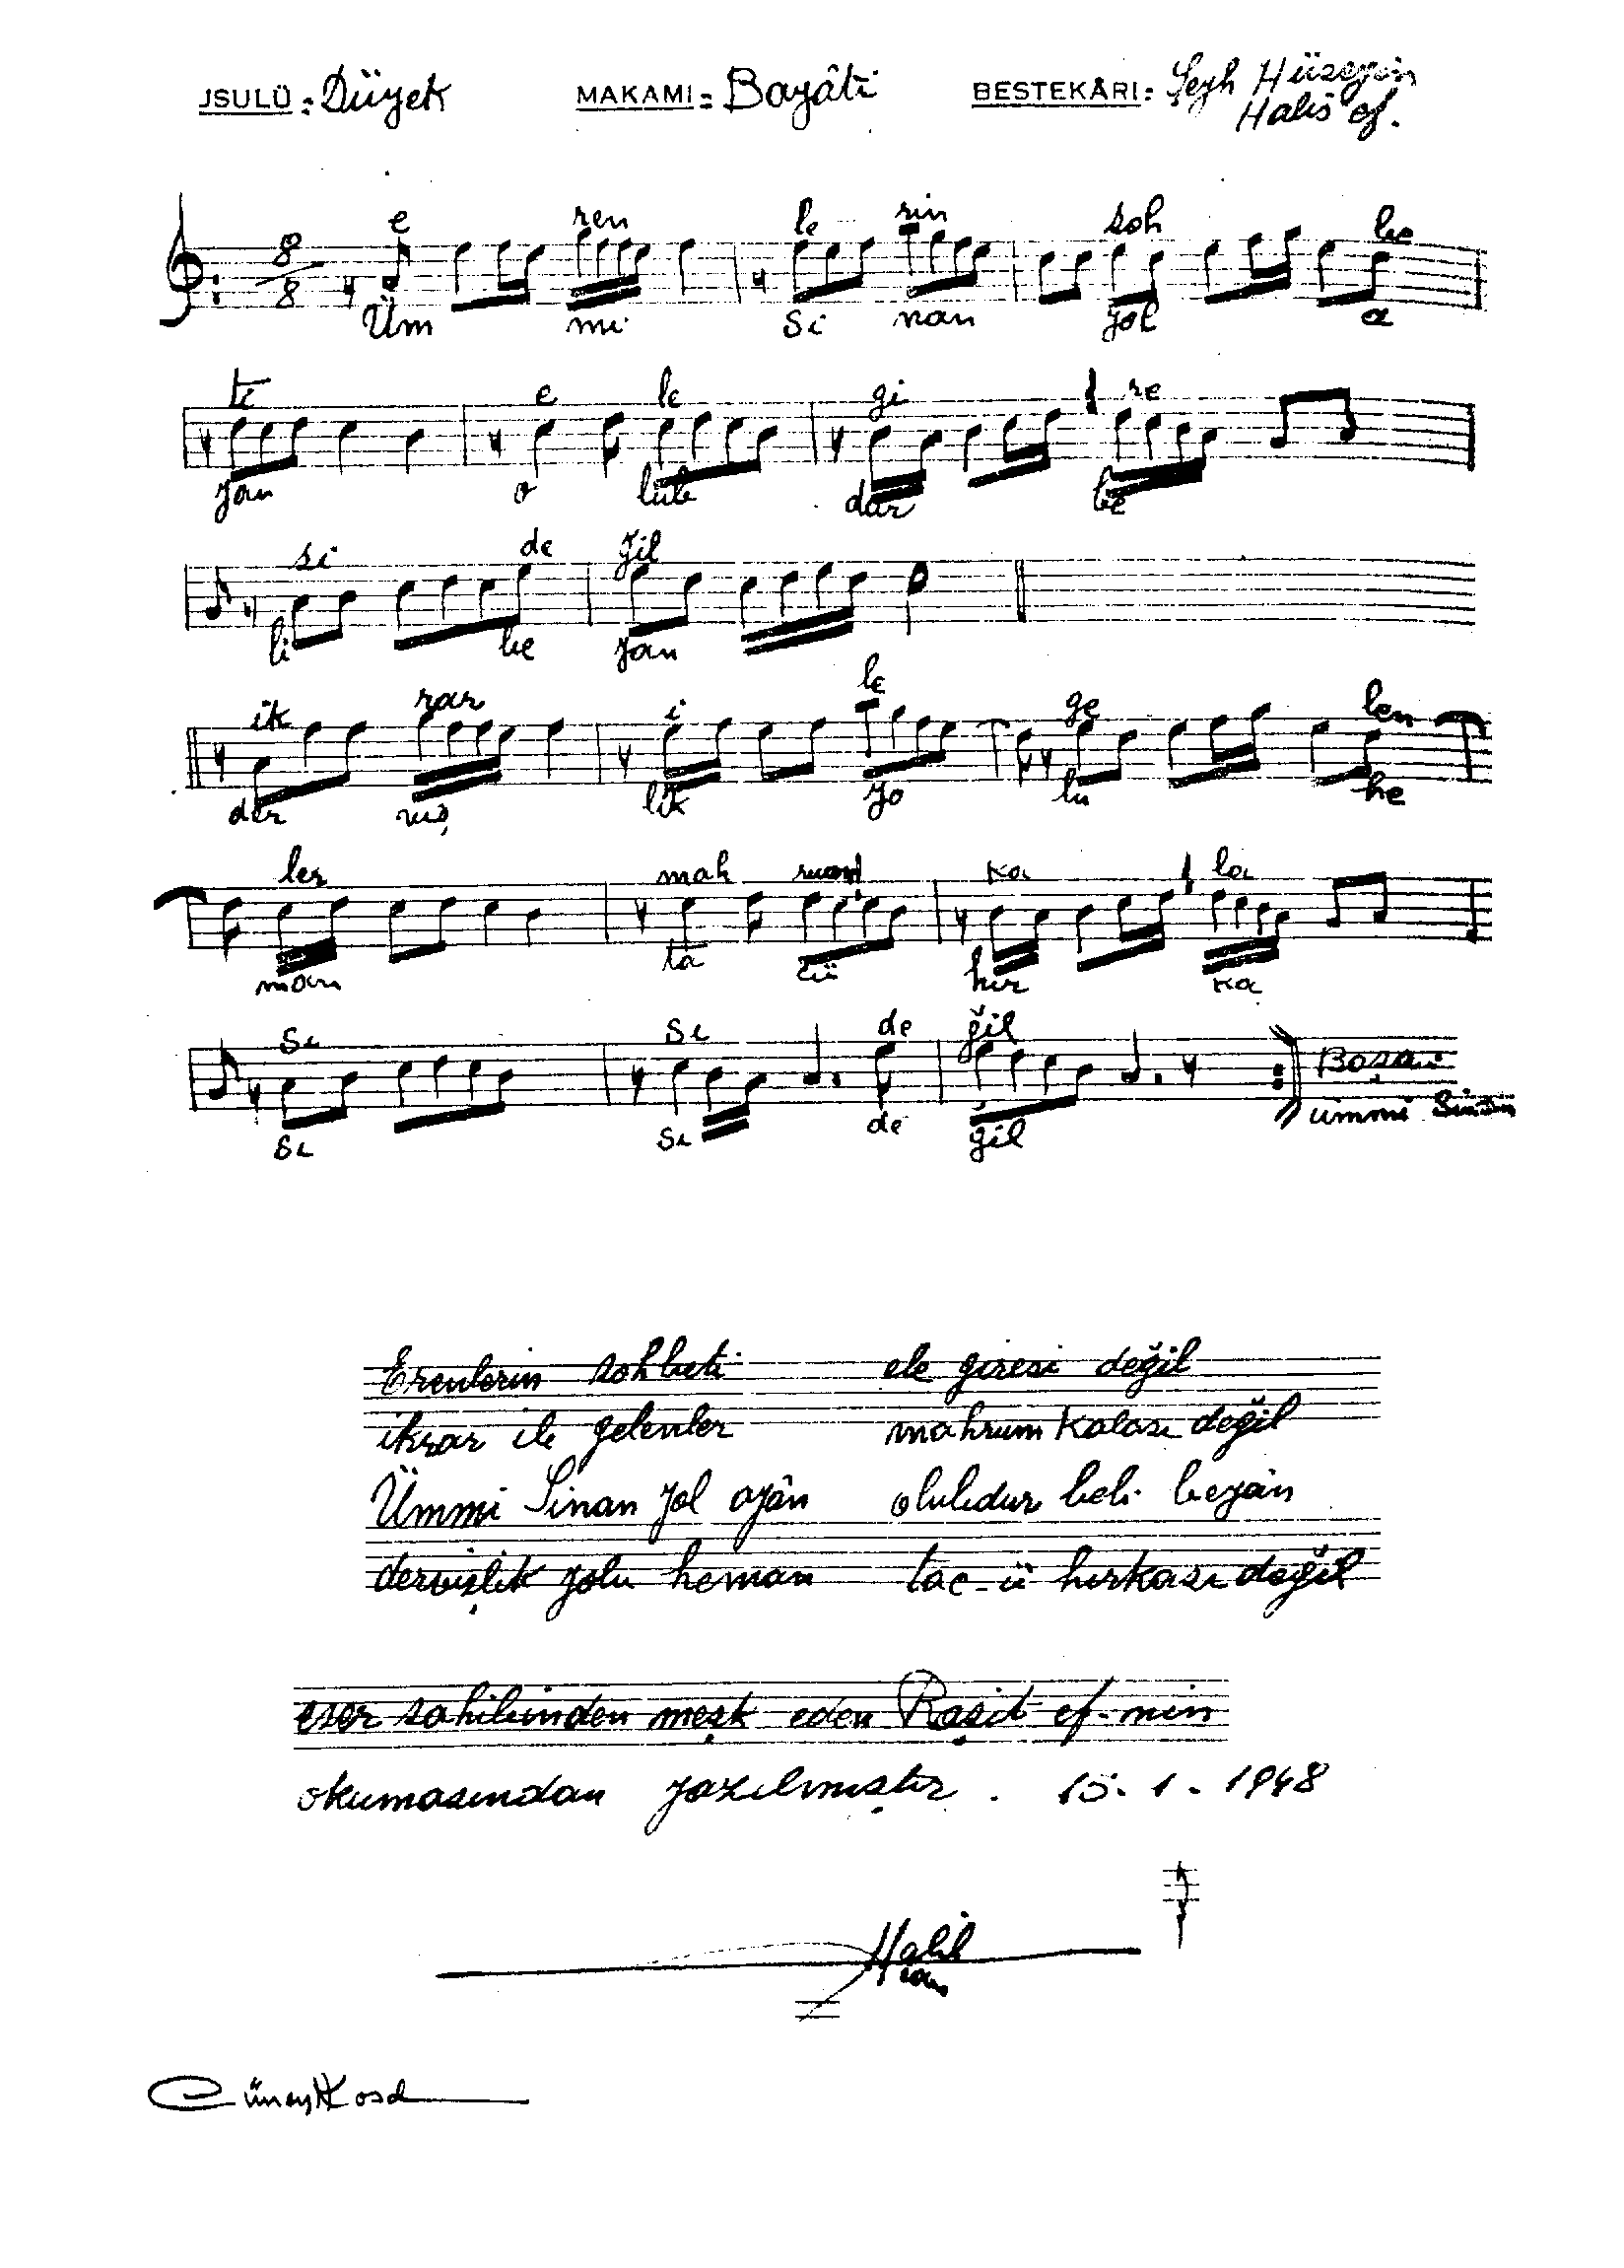 USULÜ = Düyek MAKAMI = Bayâti BESTEKÂRI = Şeyh Hüseyin
Halis ef.
e ren le rin soh be
8/8
Üm mi Si nan yol a
ti e le gi re
yan o lub dur be
si de ğil
li be yan
ik rar i le ge len
der viş lik yo lu he
ler mah rum ka la
man ta cü hır ka
sı sı de ğil
Başa:
ümmi Sinan
sı sı de ğil
Erenlerin sohbeti ele giresi değil
ikrar ile gelenler mahrum kalası değil
Ümmi Sinan yol ayân olubdur beli beyân
dervişlik yolu heman tac-ü hırkası değil
eser sahibinden meşk eden Raşit ef-nin
okumasından yazılmıştır. 15.1.1948
Halil
Can
Cüneyt Kosal